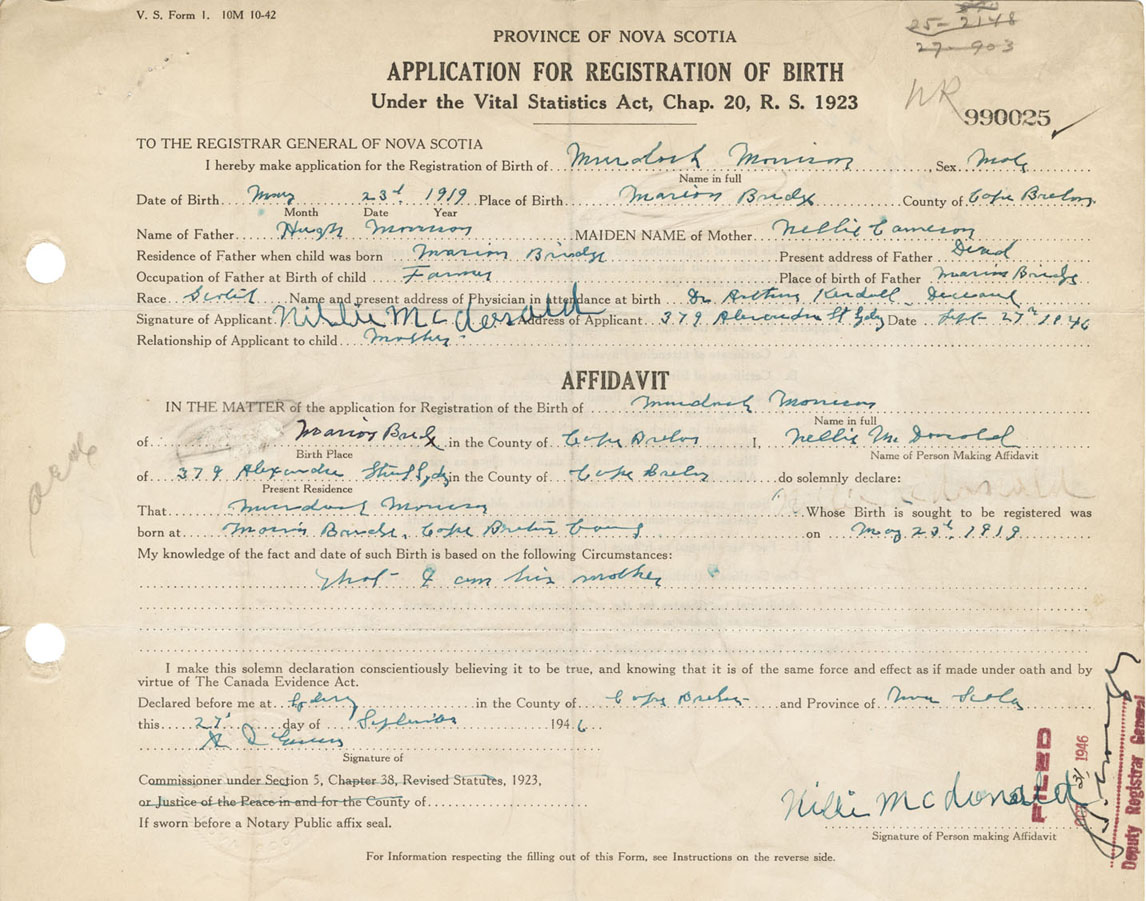 V. S. Form 1. 10M 10-42
25-2148
27-903
PROVINCE OF NOVA SCOTIA
APPLICATION FOR REGISTRATION OF BIRTH
Under the Vital Statistics Act, Chap. 20, R. S. 1923
NR
990025
TO THE REGISTRAR GENERAL OF NOVA SCOTIA
I hereby make application for the Registration of Birth of Murdock Morrison, Sex Male
Name in full
Date of Birth May 23rd 1919 Place of Birth Marion Bridge County of Cape Breton
Month Date Year
Name of Father Hugh Morrison, MAIDEN NAME of Mother Nellie Cameron
Residence of Father when child was born Marion Bridge Present address of Father Dead
Occupation of Father at Birth of child Farmer Place of birth of Father Marion Bridge
Race Scotch Name and present address of Physician in attendance at birth Dr Arthur Kendall - Deceased
Signature of Applicant Nillie McDonald Address of Applicant 379 Alexandra St Sydney Date Sept 27th 1946
Relationship of Applicant to child Mother
AFFIDAVIT
IN THE MATTER of the application for Registration of the Birth of Murdock Morrison
Name in full
of Marion Bridge in the County of Cape Breton I, Nellie McDonald
Birth Place Name of Person Making Affidavit
of 379 Alexandra Street Sydney in the County of Cape Breton do solemnly declare:
Present Residence
That Murdock Morrison Whose Birth is sought to be registered was
born at Marion Bridge, Cape Breton County on May 23rd 1919
My knowledge of the fact and date of such Birth is based on the following Circumstances:
That I am his mother
I make this solemn declaration conscientiously believing it to be true, and knowing that it is of the same force and effect as if made under oath and by
virtue of The Canada Evidence Act.
Declared before me at Sydney in the County of Cape Breton and Province of Nova Scotia
this 27 day of September 1946
Signature of
Commissioner under Section 5, Chapter 38, Revised Statutes, 1923,
or Justice of the Peace in and for the County of
If sworn before a Notary Public affix seal.
Nillie McDonald
Signature of Person making Affidavit
FILED
OCT 31 1946
Deputy Registrar General
For Information respecting the filling out of this Form, see Instructions on the reverse side.